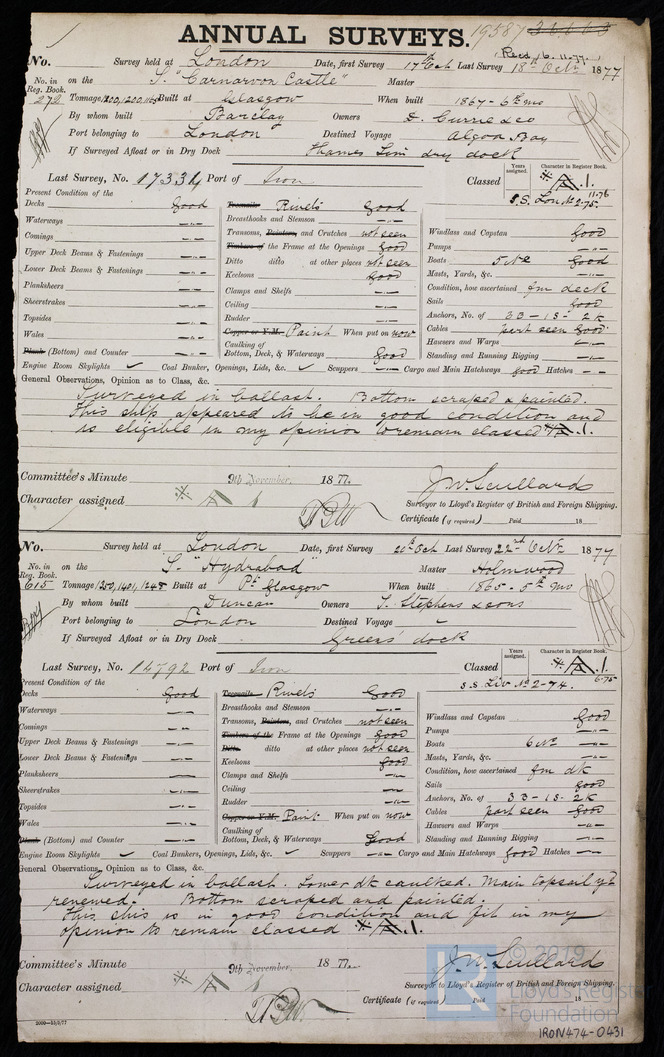 ANNUAL SURVEYS. 19587
Recd 16.11.77
No. Survey held at London Date, first Survey 17th Oct Last Survey 18th Octr 1877
No. in Reg. Book. on the S. "Carnarvon Castle" Master
272 Tonnage 1200,1200,1165 Built at Glasgow When built 1867 - 6th mo
By whom built Barclay Owners D. Currie & Co
Port belonging to London Destined Voyage Algoa Bay
If Surveyed Afloat or in Dry Dock Thames Iron dry dock
Last Survey, No. 17334 Port of Iron Classed Years assigned. Character in Register Book. A.1. 11.76
S.S. Lon. No 2-75.
Present Condition of the
Decks good Treenails Rivets good
Waterways -"- Breasthooks and Stemson -"- Windlass and Capstan good
Comings -"- Transoms, Pointers, and Crutches not seen Pumps -"-
Upper Deck Beams & Fastenings -"- Timbers of the Frame at the Openings good Boats 5 No good
Lower Deck Beams & Fastenings -"- Ditto ditto at other places not seen Masts, Yards, &c. -"-
Planksheers -"- Keelsons good Condition, how ascertained fm deck
Sheerstrakes -"- Clamps and Shelfs -"- Sails good
Topsides -"- Ceiling -"- Anchors, No. of 3B-1S-2K
Wales -"- Rudder -"- Cables part seen good
Plank (Bottom) and Counter -"- Copper or Y.M. Paint When put on now Hawsers and Warps -"-
Caulking of Bottom, Deck, & Waterways Good Standing and Running Rigging -"-
Engine Room Skylights ✓ Coal Bunker, Openings, Lids, &c. ✓ Scuppers -"- Cargo and Main Hatchways good Hatches -"-
General Observations, Opinion as to Class, &c.
Surveyed in ballast. Bottom scraped & painted.
This ship appeared to be in good condition and
is eligible in my opinion to remain classed A.1.
Committee's Minute 9th November, 1877. J.W. Scullard
Character assigned A 1 Surveyor to Lloyd's Register of British and Foreign Shipping.
Certificate (if required) Paid 18
No. Survey held at London Date, first Survey 20th Oct Last Survey 22nd Octr 1877
No. in Reg. Book. on the S. "Hydrabad" Master Holmwood
615 Tonnage 1350,1401,1248 Built at Pt Glasgow When built 1865-5th mo
By whom built Duncan Owners T. Stephens & Sons
Port belonging to London Destined Voyage
If Surveyed Afloat or in Dry Dock Greens' dock
Last Survey, No. 14792 Port of Iron Classed Years assigned. Character in Register Book. A.1. 6.75
S.S. Liv No 2-74.
Present Condition of the
Decks Good Treenails Rivets Good
Waterways -"- Breasthooks and Stemson -"- Windlass and Capstan Good
Comings -"- Transoms, Pointers, and Crutches not seen Pumps -"-
Upper Deck Beams & Fastenings -"- Timbers of the Frame at the Openings good Boats 6 No -"-
Lower Deck Beams & Fastenings -"- Ditto ditto at other places not seen Masts, Yards, &c. -"-
Planksheers -"- Keelsons good Condition, how ascertained fm dk
Sheerstrakes -"- Clamps and Shelfs -"- Sails good
Topsides -"- Ceiling -"- Anchors, No. of 3B-1S-2K
Wales -"- Rudder -"- Cables part seen Good
Plank (Bottom) and Counter -"- Copper or Y.M. Paint When put on now Hawsers and Warps -"-
Caulking of Bottom, Deck, & Waterways Good Standing and Running Rigging -"-
Engine Room Skylights ✓ Coal Bunkers, Openings, Lids, &c. ✓ Scuppers -"- Cargo and Main Hatchways Good Hatches -"-
General Observations, Opinion as to Class, &c.
Surveyed in ballast. Lower dk caulked. Main topsail yd
renewed. Bottom scraped and painted.
This ship is in good condition and fit in my
opinion to remain classed A.1.
Committee's Minute 9th November, 1877. J.W. Scullard
Character assigned A 1 Surveyor to Lloyd's Register of British and Foreign Shipping.
Certificate (if required) Paid 18
2000—15/2/77
© 2019
Lloyd's Register
Foundation
IRON474-0431